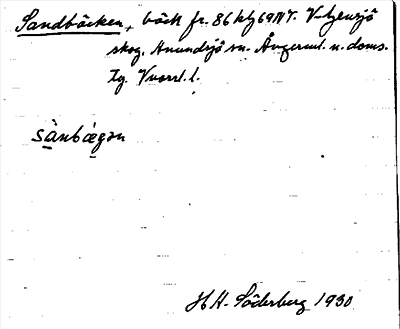 Sandbäcken, bäck fr. 86 klg 69 NV. V-tjensjö
skog, Anundsjö sn. Ångerml. n. doms.
tg. Vnorrl. l.
sànbǽgən
H H. Söderberg 1930